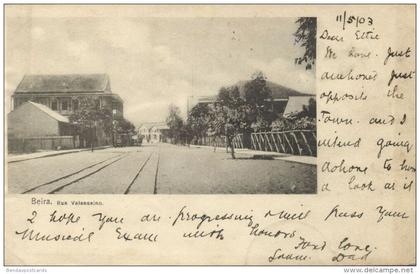 11/5/03
Dear Ettie
We have just
anchored just
opposits the
Town. and I
intend going
ashore to have
a look at it
Beira. Rua Valsassina.
I hope you are progressing & will Pass your
Musical Exam with honors.
Fond love.
Dad
© bennypostcards
delcampe.net